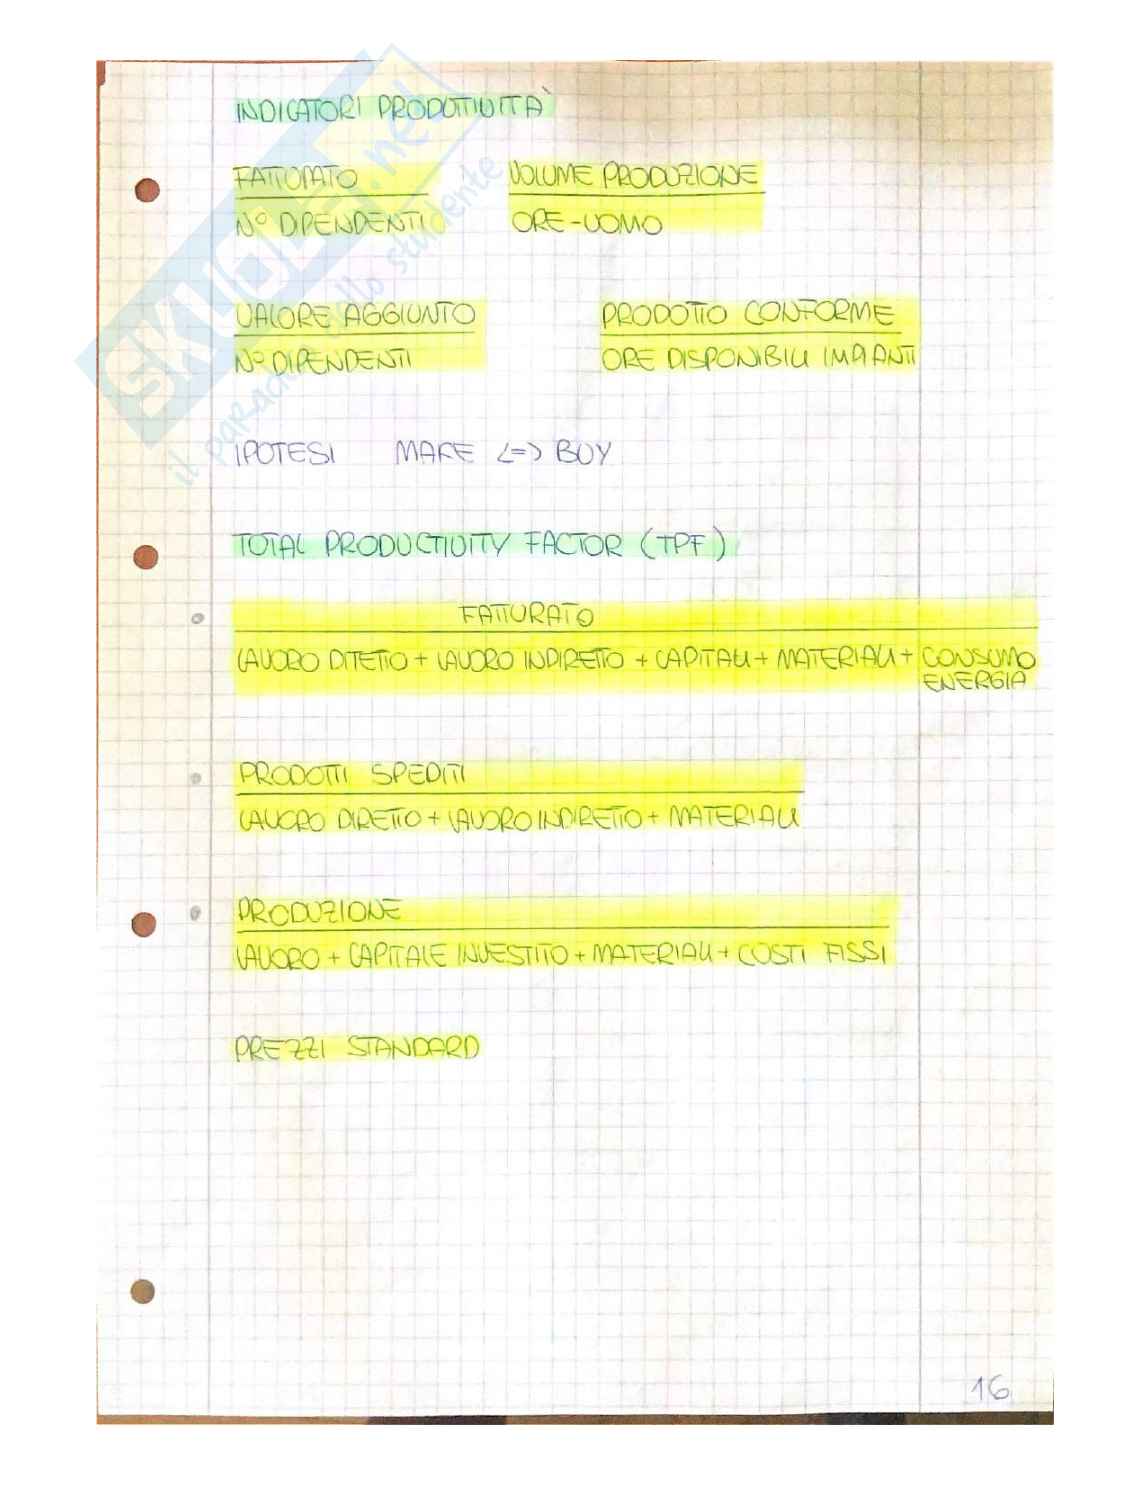 INDICATORI PRODUTTIVITÀ
FATTURATO VOLUME PRODUZIONE
N° DIPENDENTI ORE-UOMO
VALORE AGGIUNTO PRODOTTO CONFORME
N° DIPENDENTI ORE DISPONIBILI IMPIANTI
IPOTESI MAKE <=> BUY
TOTAL PRODUCTIVITY FACTOR (TPF)
FATTURATO
LAVORO DITETTO + LAVORO INDIRETTO + CAPITALI + MATERIALI + CONSUMO
ENERGIA
PRODOTTI SPEDITI
LAVORO DIRETTO + LAVORO INDIRETTO + MATERIALI
PRODUZIONE
LAVORO + CAPITALE INVESTITO + MATERIALI + COSTI FISSI
PREZZI STANDARD
16
SKUOLA.net
il paradiso dello studente